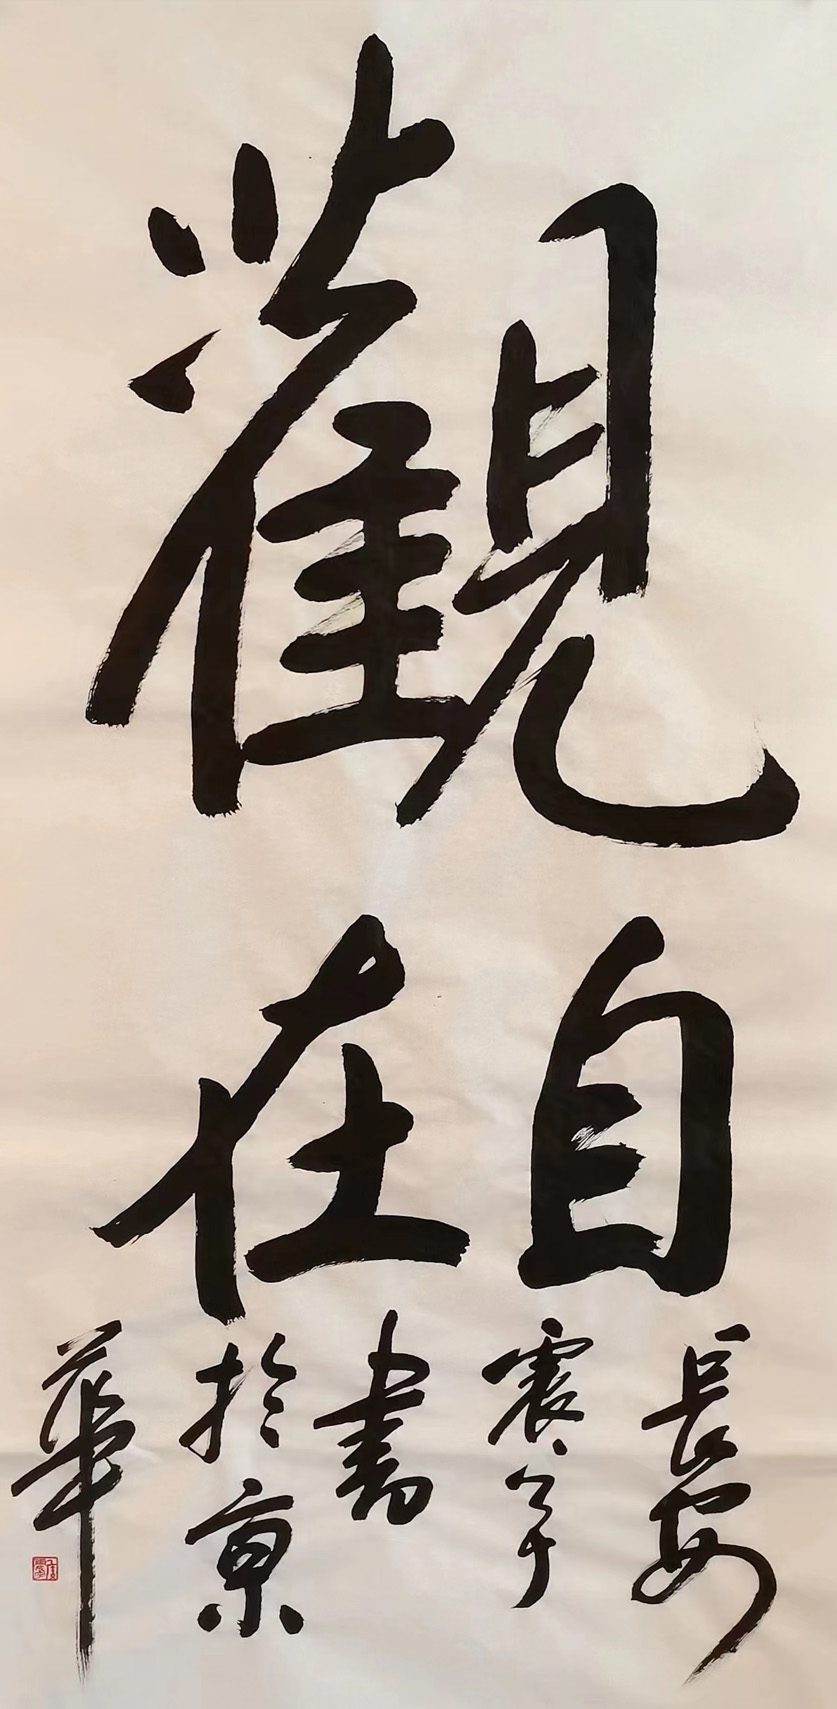 觀
自在
長安
震
書
於京
華